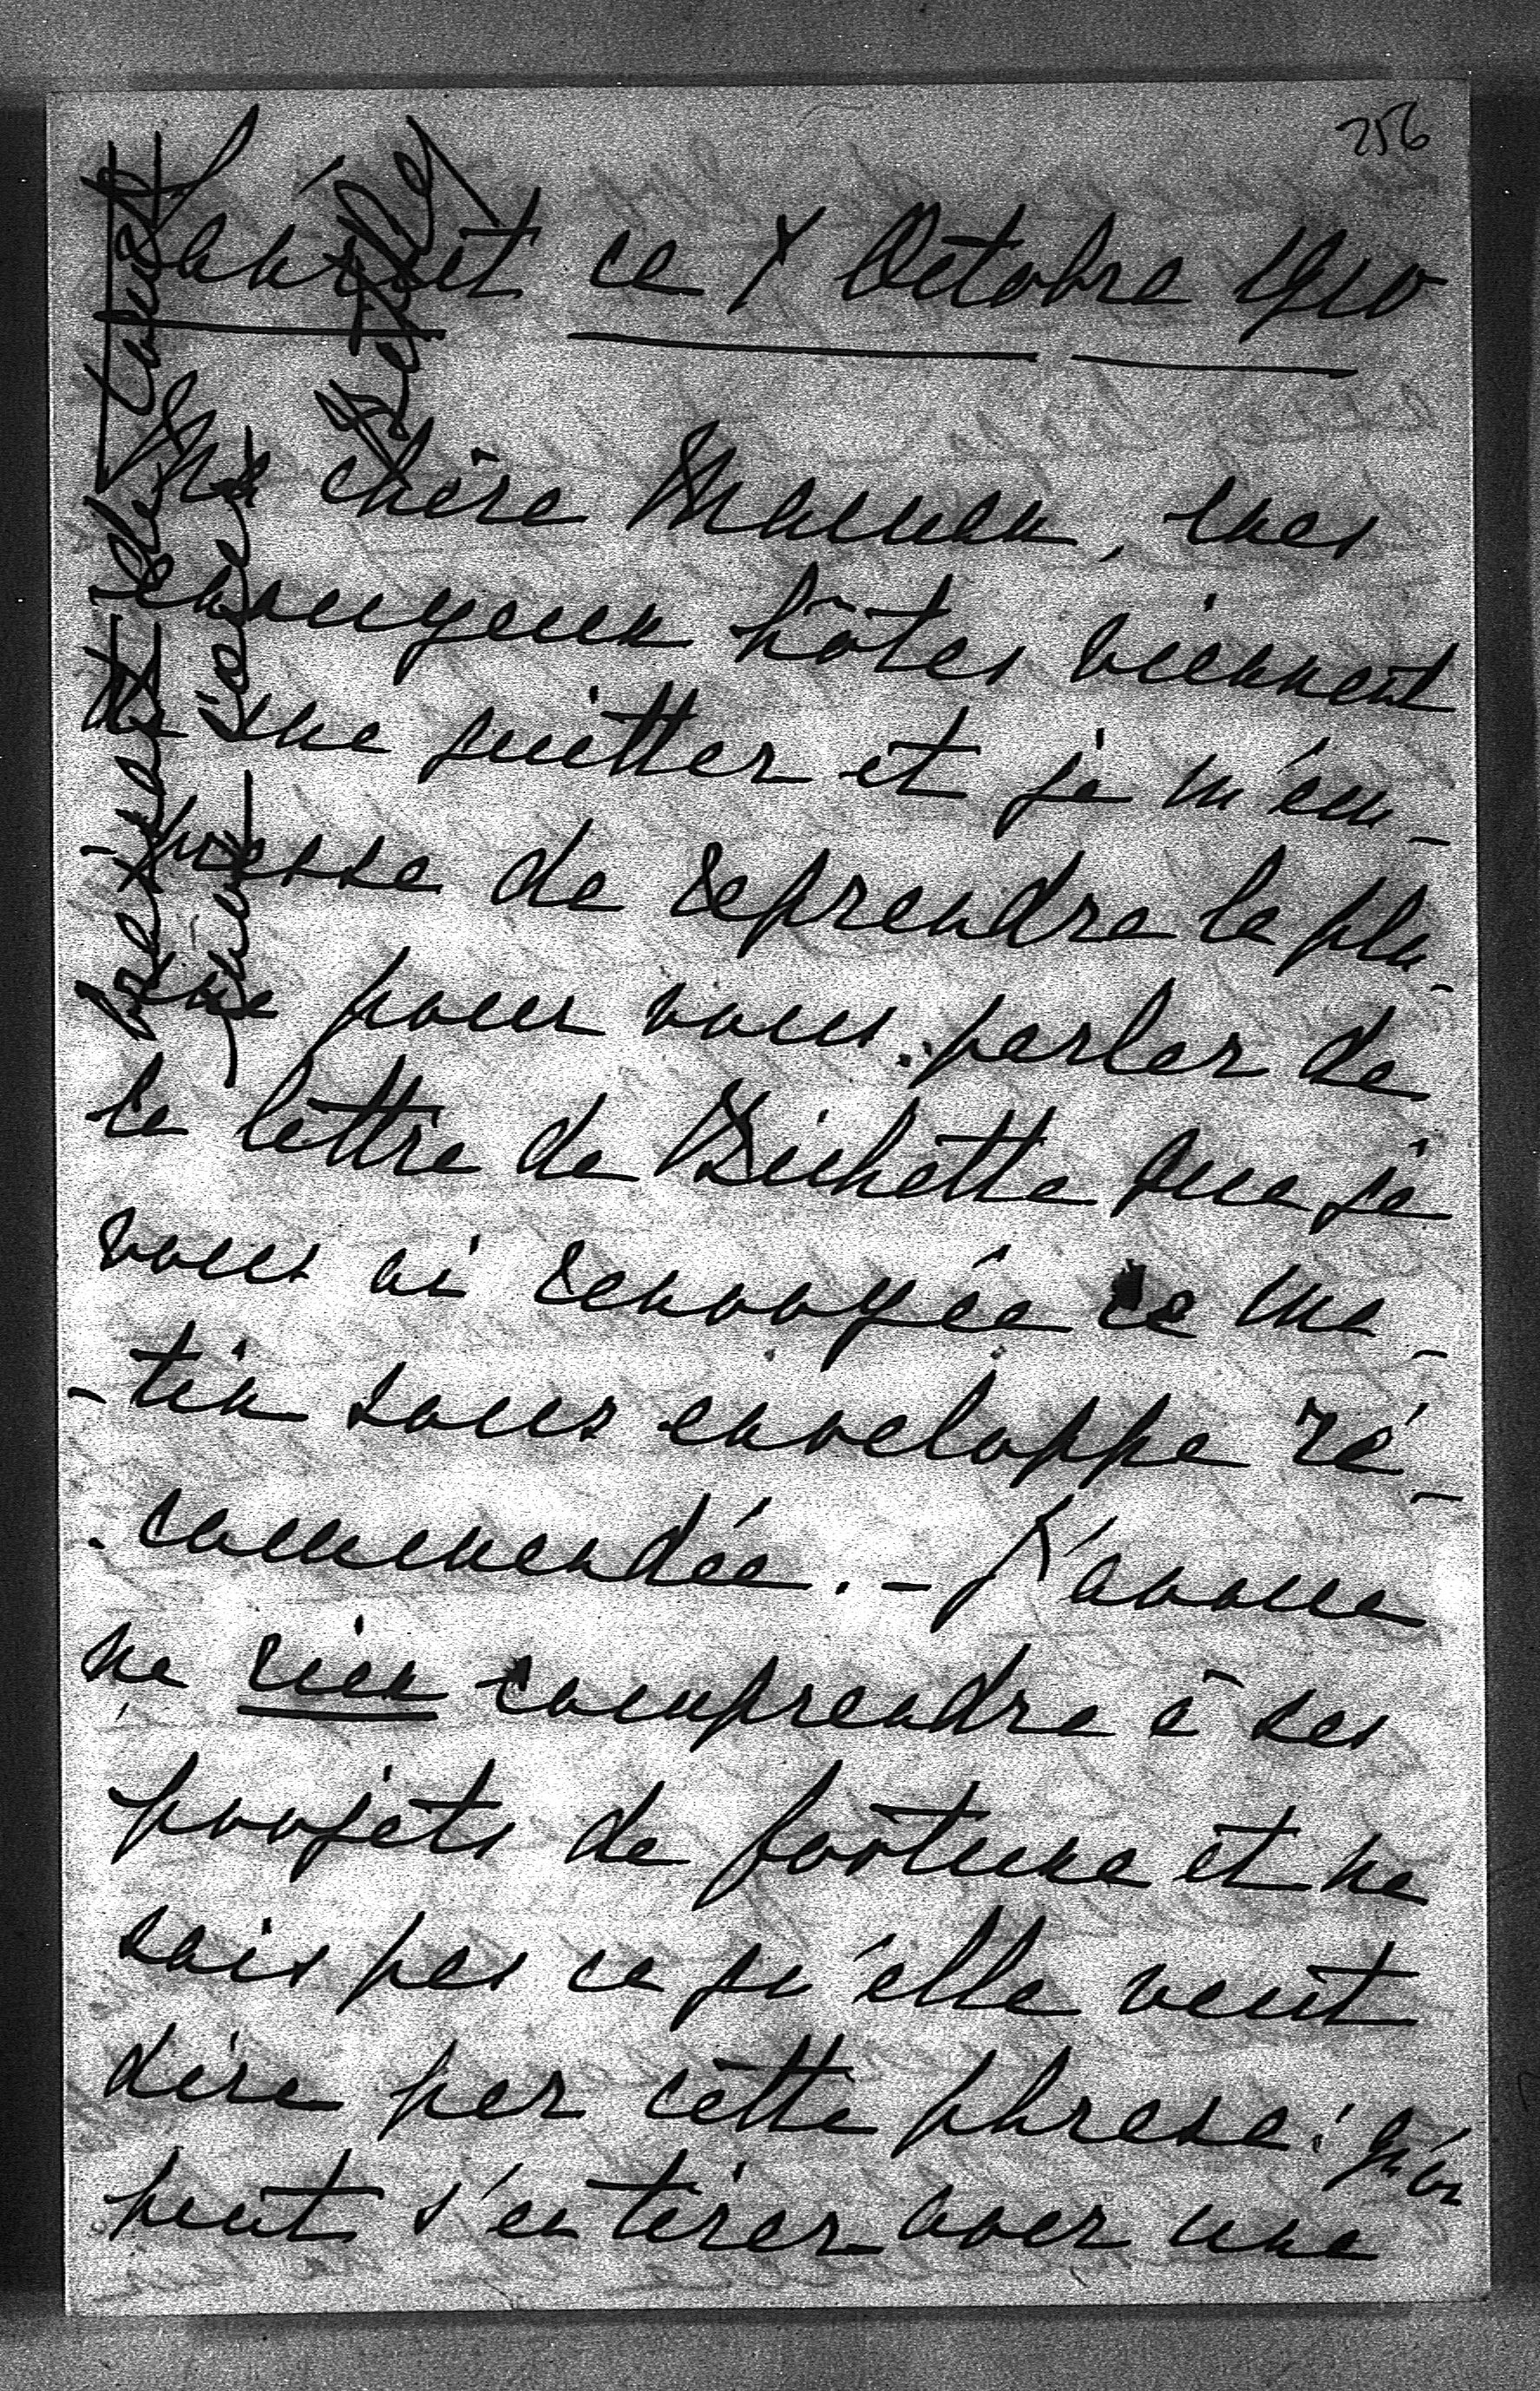 256
ce 7 Octobre 1910
Ma chère Maman, mes
ennuyeux hôtes viennent
de me quitter et je m'em-
-presse de reprendre la plu-
-me pour vous parler de
la lettre de Bichette que je
vous ai renvoyée ce ma-
-tin sous enveloppe ré-
-commandée. - J'avoue
ne rien comprendre à ses
projets de fortune et ne
sais pas ce qu'elle veut
dire par cette phrase: qu'on
peut s'en tirer avec une